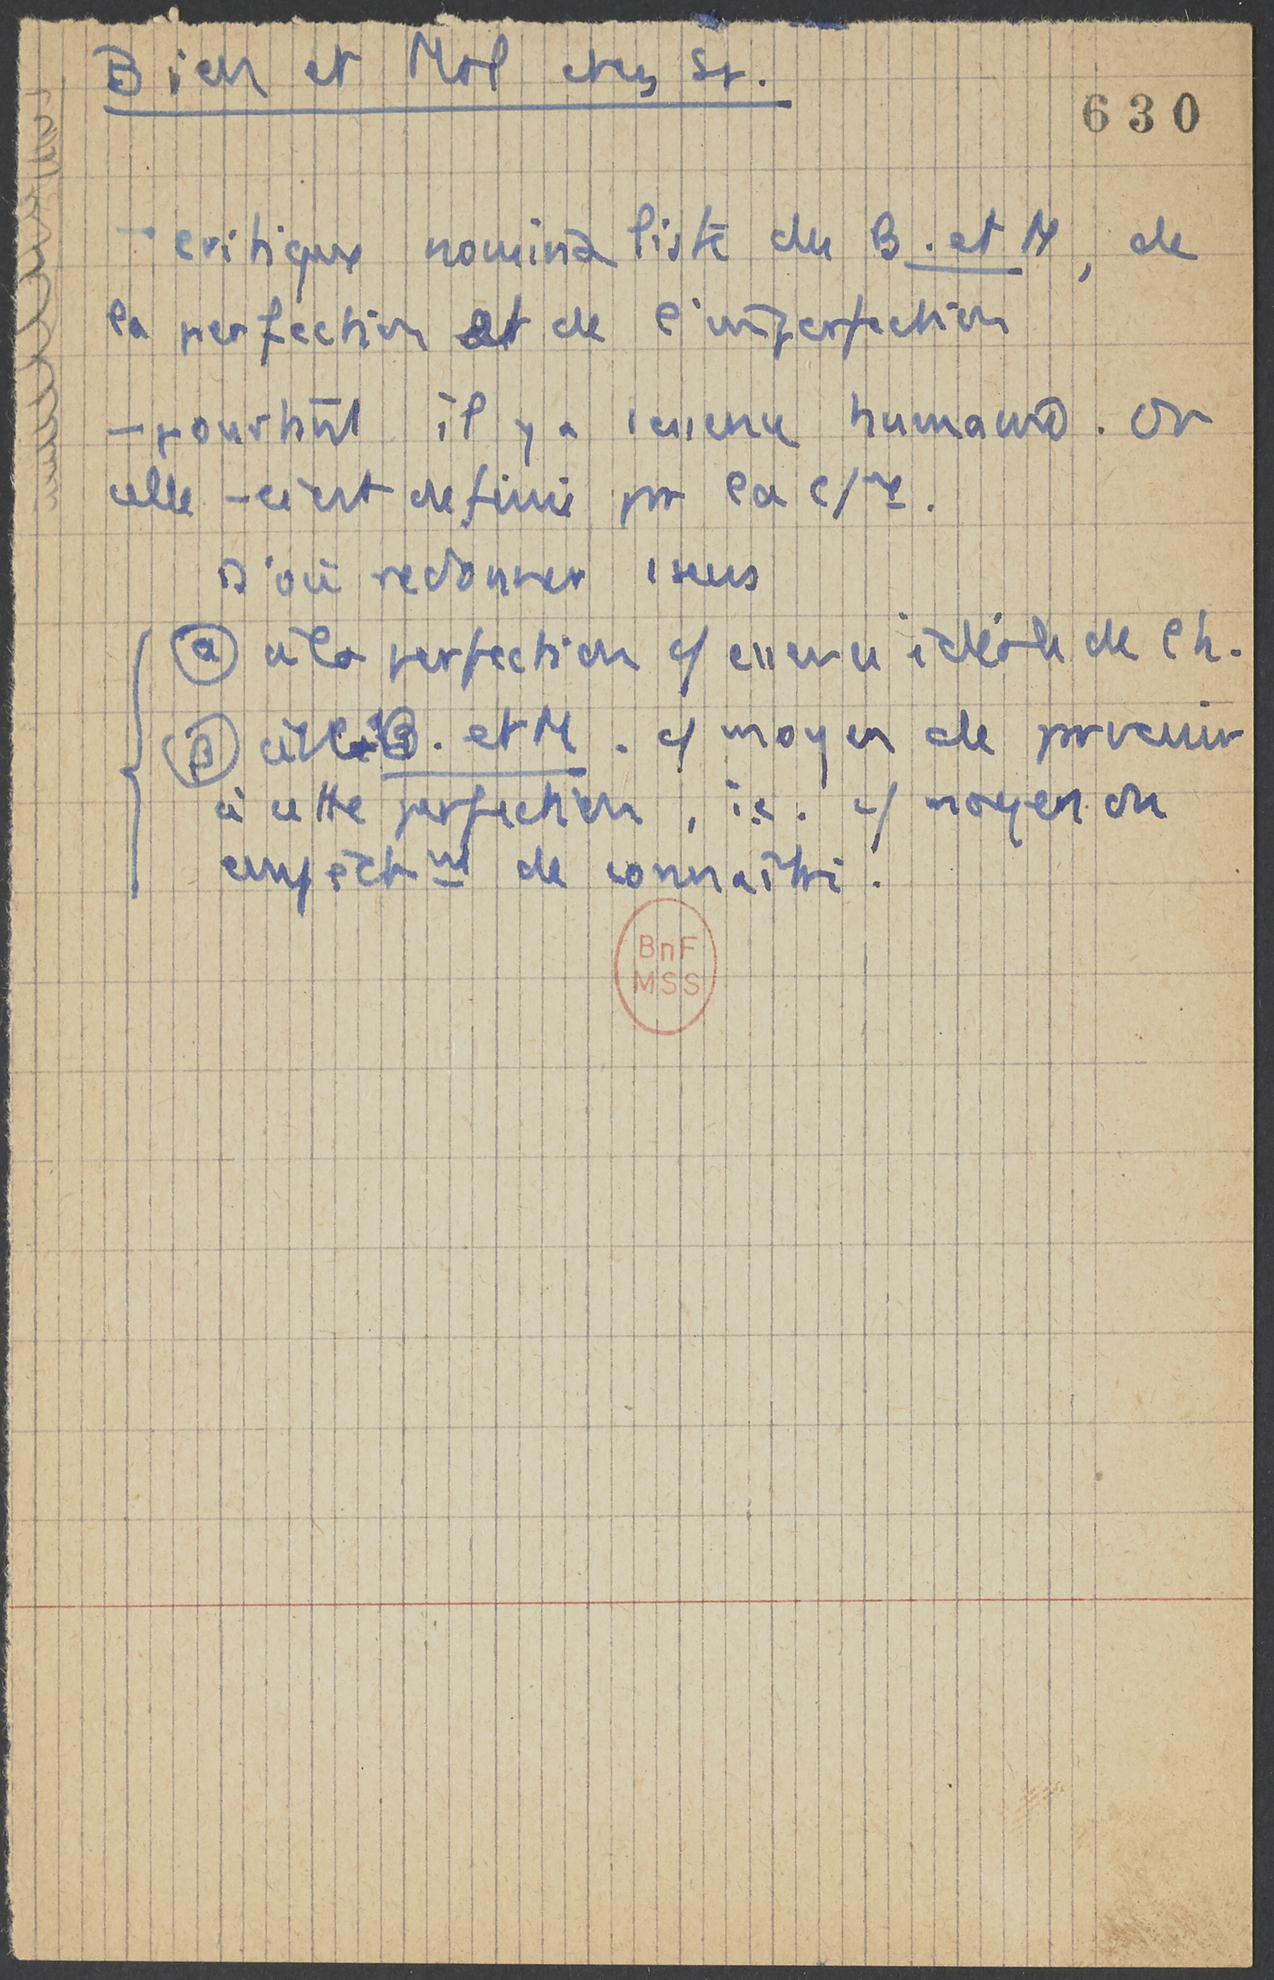 Bien et Mal chez Sp.
630
- critique nominaliste du B. et M, de
la perfection et de l'imperfection
- pourtant il y a 1 essence humaine. Or
celle-ci est définie pr la c/ce.
D'où redonner 1 sens
α à la perfection c/ essence idéale de l'h.
β à la B. et M. c/ moyen de parvenir
à cette perfection, i.e. c/ moyen ou
empêchmt de connaître.
BnF
MSS